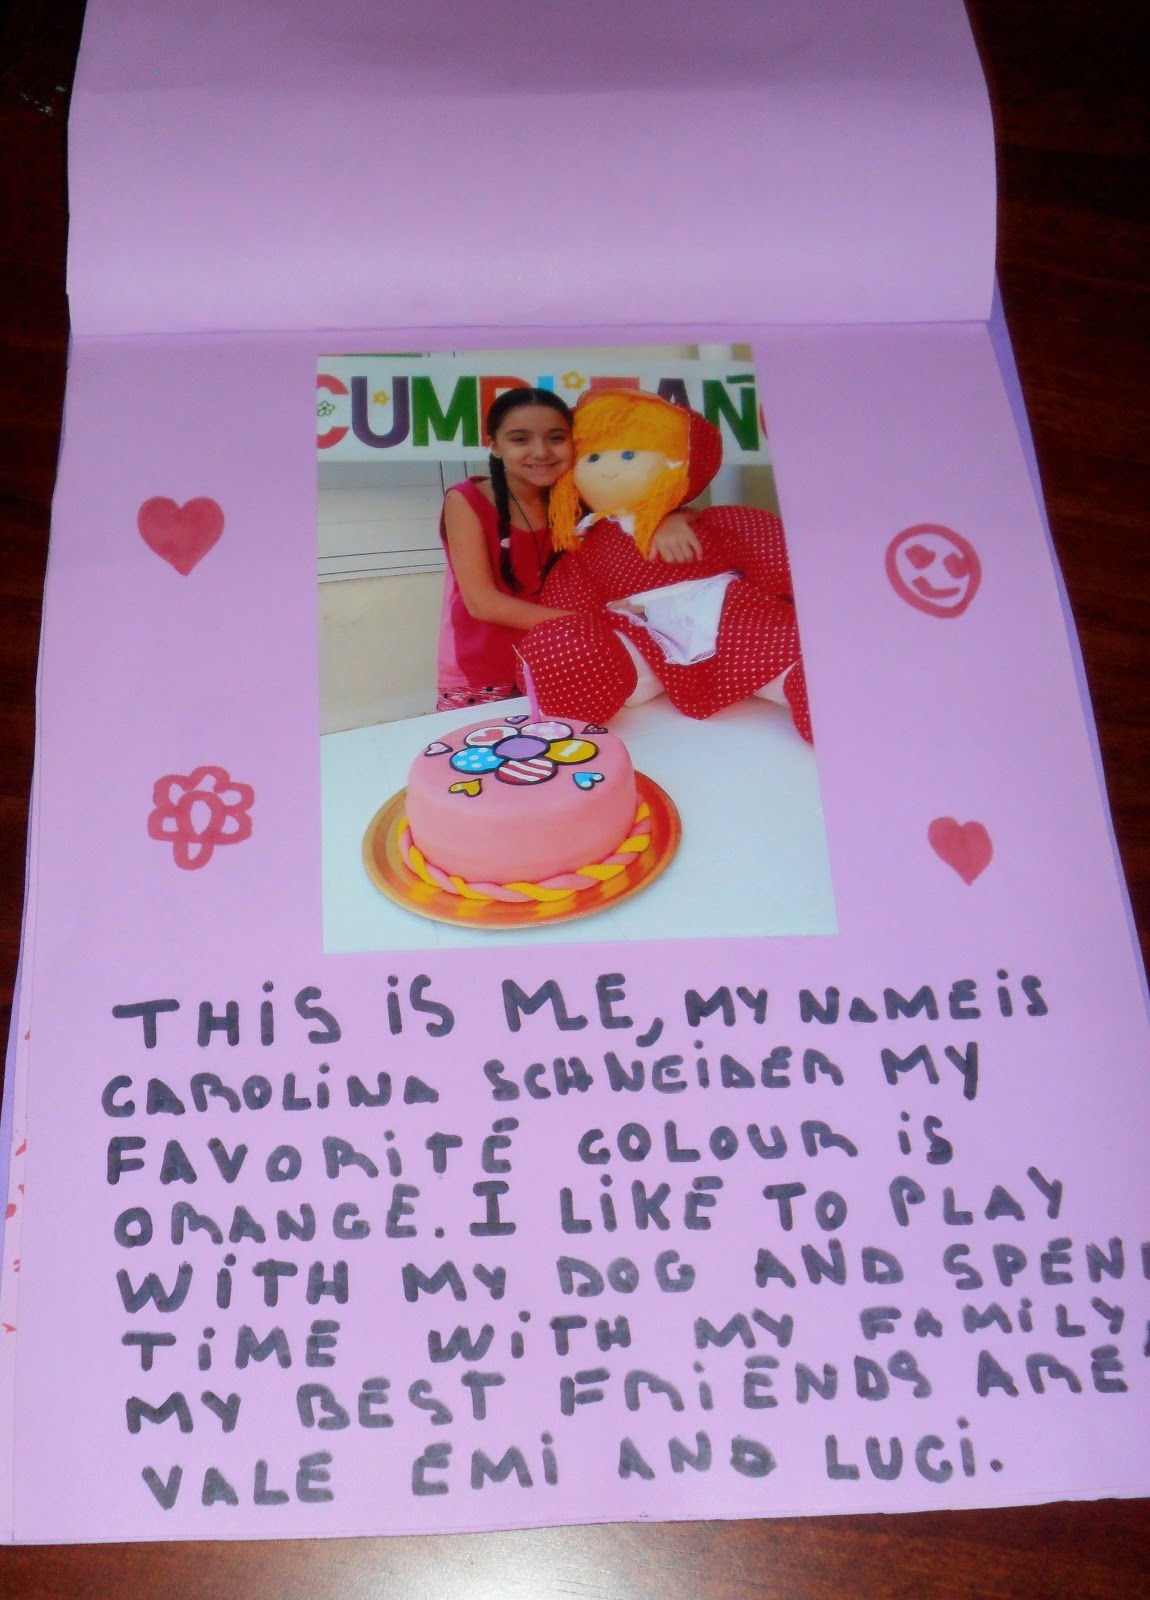 CUMPLEAÑO
THIS IS ME, MY NAME IS
CAROLINA SCHNEIDER MY
FAVORITE COLOUR IS
ORANGE. I LIKE TO PLAY
WITH MY DOG AND SPEND
TIME WITH MY FAMILY,
MY BEST FRIENDS ARE
VALE EMI AND LUCI.